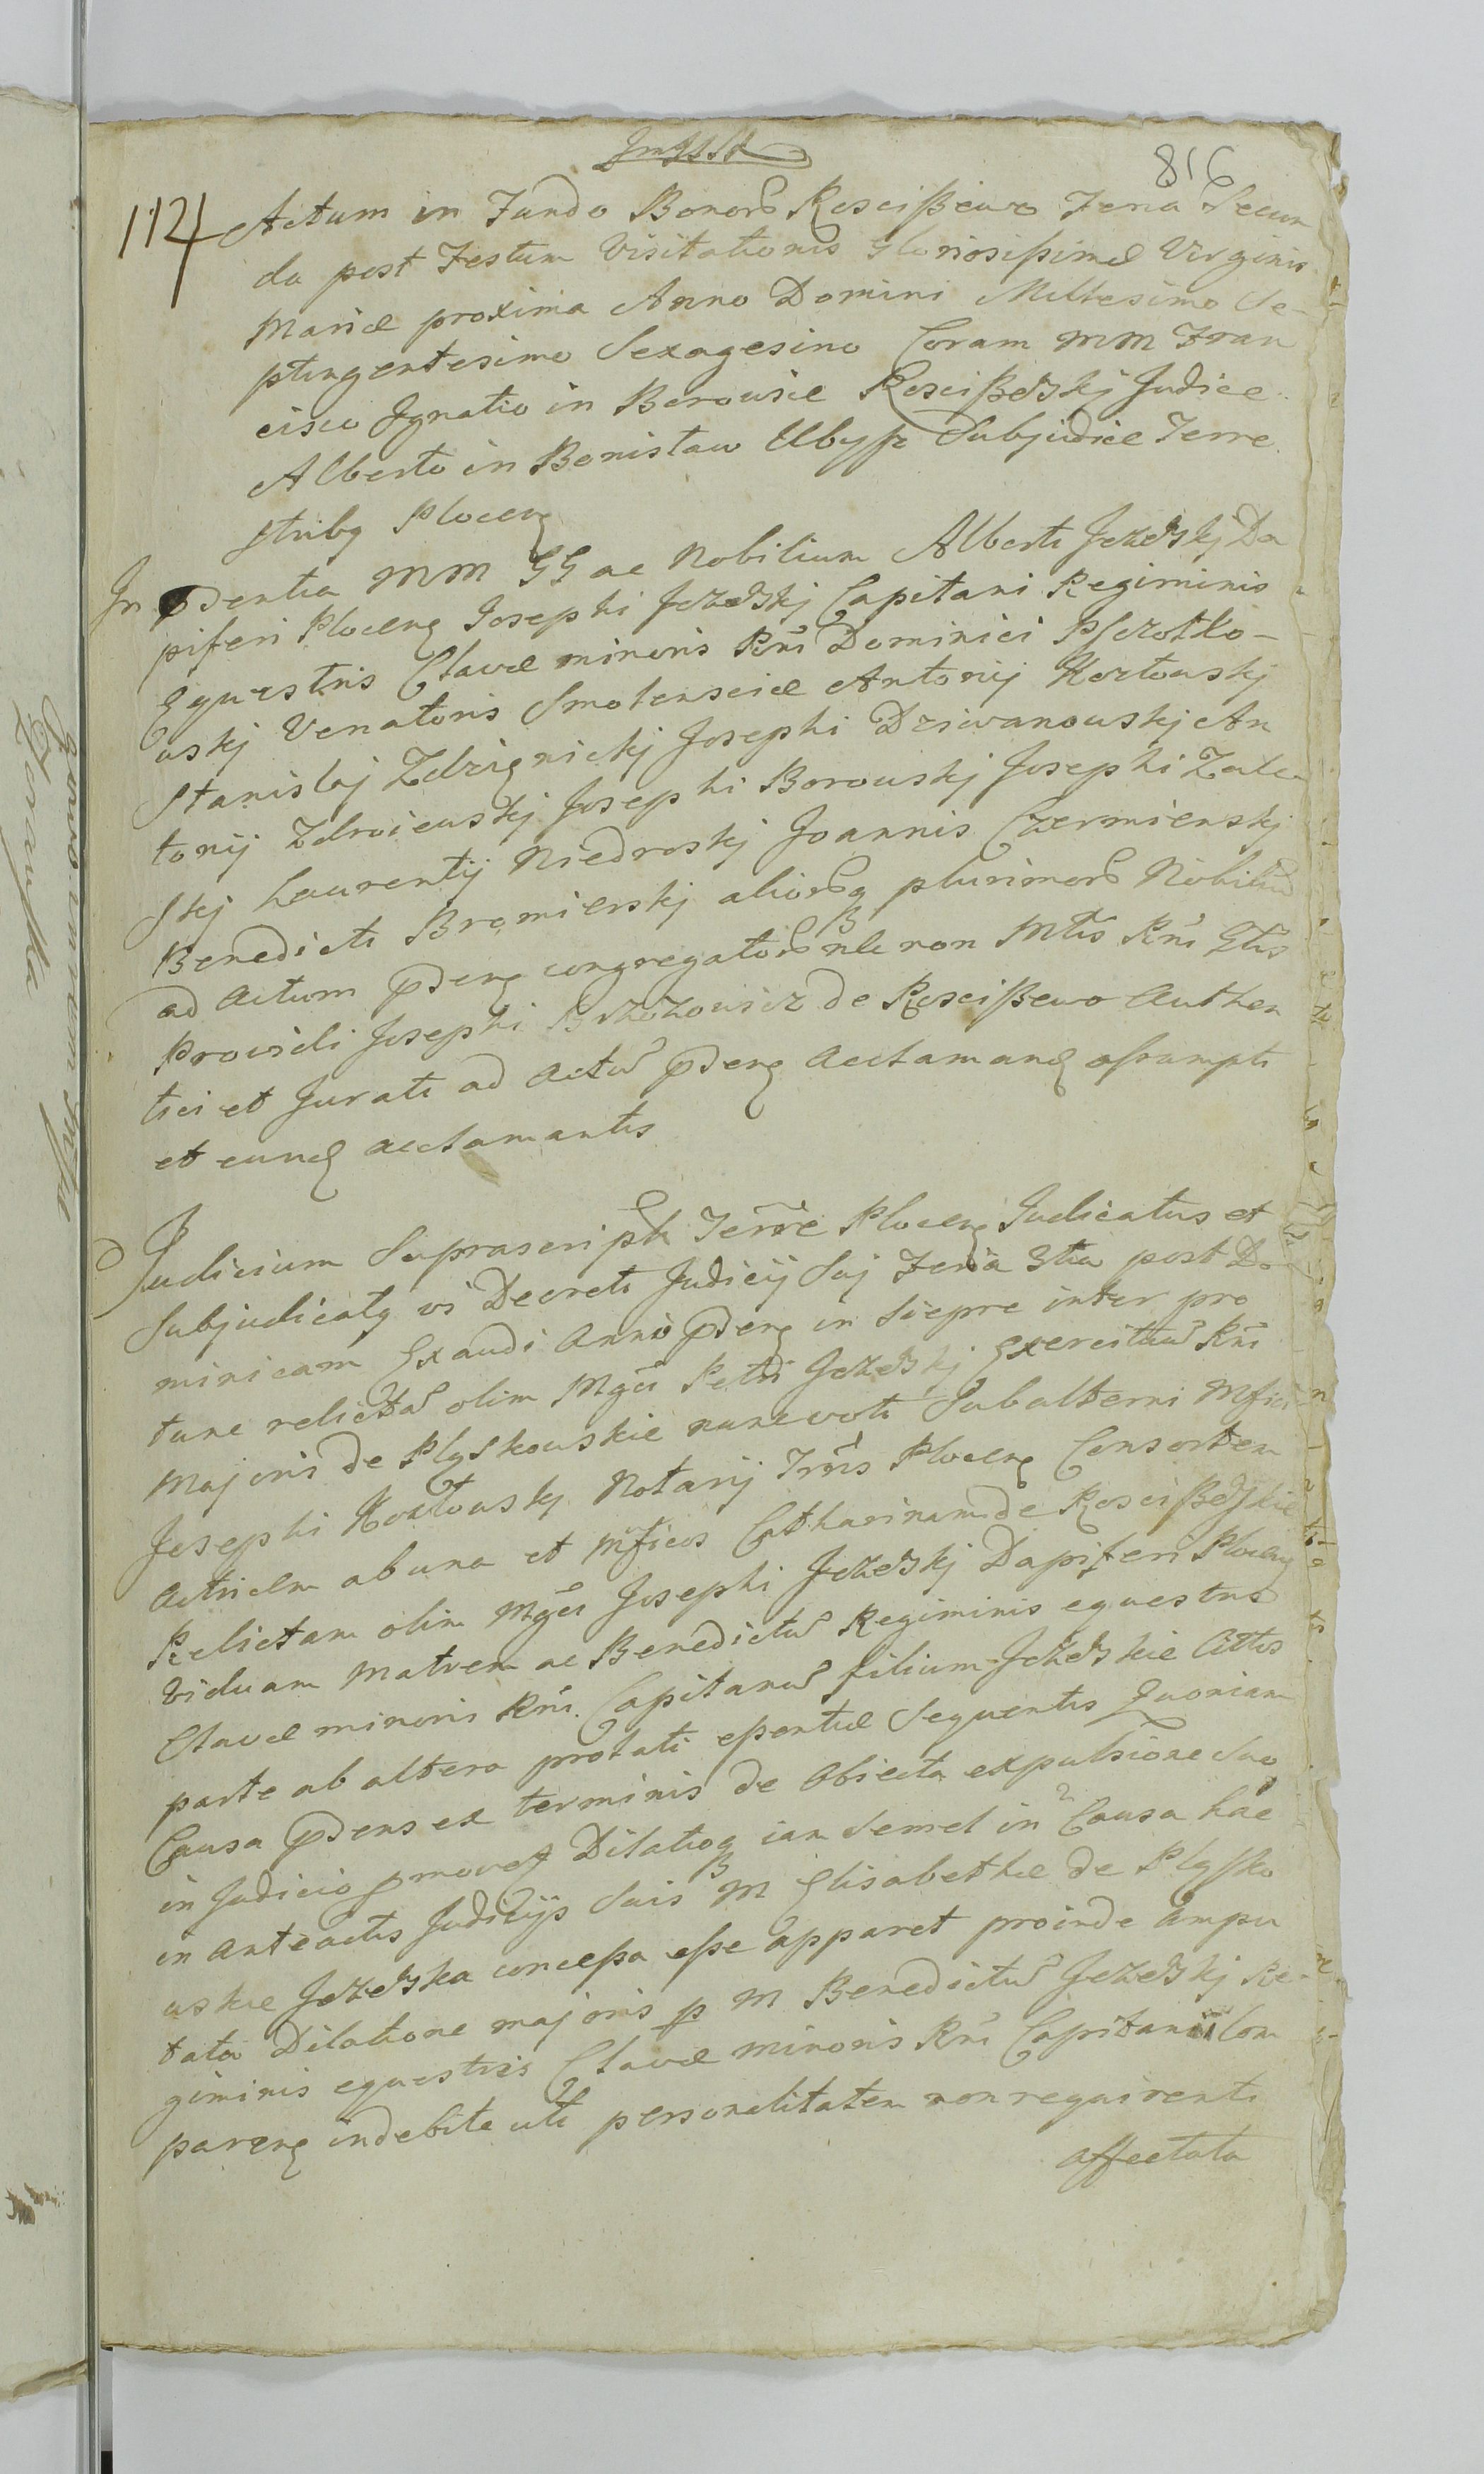 816
112
Actum in Fundo Bonor Kosciszewo Feria Secun
da post Festum Visitationis Gloriosissimæ Virginis
Mariæ proxima Anno Domini Millesimo Se-
ptingentesimo Sexagesimo Coram MM Fran
cisco Ignatio in Borowice Kosciszewskj Judice
Alberto in Bonislaw Ubysz Subjudice Terre
stribq Plocenq
In pdentia MM GG ac Nobilium Alberti Jezewskj Da
piferi Plocenq Josephi Jezewskj Capitani Regiminis
Equestris Clavæ minoris Rni Dominici Pszczołko-
wskj Venatoris Smolensciæ Antonij Kozłowskj
Stanislaj Zdzięnickj Josephi Dziwanowskj An
tonij Zdroiewskj Josephi Borowskj Josephi Zale
skj Laurentij Niedroskj Joannis Czermienskj
Benedicti Bromierskj aliorq plurimor Nobiliu
ad Actum pdenq congregator nec non Mtis Rni Gtis
Providi Josephi Brzozowicz de Kosciszewo Authen
tici et Jurati ad Actu pdenq Acclamanq assumpti
et eunq acclamantis
Judicium Suprascriptu Terre Plocenq Judicatus et
Subjudicatq vi Decreti Judicij Suj Feria 3tia post Do
minicam Exaudi Anni pdenq in Siepre inter pro
tunc relicta olim Mgci Petri Jezewskj Exercituu Rni
Majoris de Plyskowskie nunc voti Subalterni Mfici
Josephi Kozłowskj Notarij Trris Plocenq Consortem
Actricem ab una et Mficos Catharinam de Kosciszewskie
Relictam olim Mgci Josephi Jezewskj Dapiferi Plocenq
Viduam Matrem ac Benedictu Regiminis equestris
Clavæ minoris Rni. Capitanu filium Jezewskie Cittos
parte ab altera prolati essentiæ Sequentis Quoniam
Causa pdens ex terminis de Obiecta expulsione Suo
in Judicio pmovetq Dilatioq iam Semel in Causa hac
in Anteactis Judicijs Suis M Elisabethæ de Plysko
wskie Jezewska concessa esse apparet proinde Ampu
tata Dilatione majoris p M Benedictu Jezewskj Re-
giminis equestris Clavæ minoris Rni Capitanii Com
parenq indebite uti personalitatem non requirenti
affectata